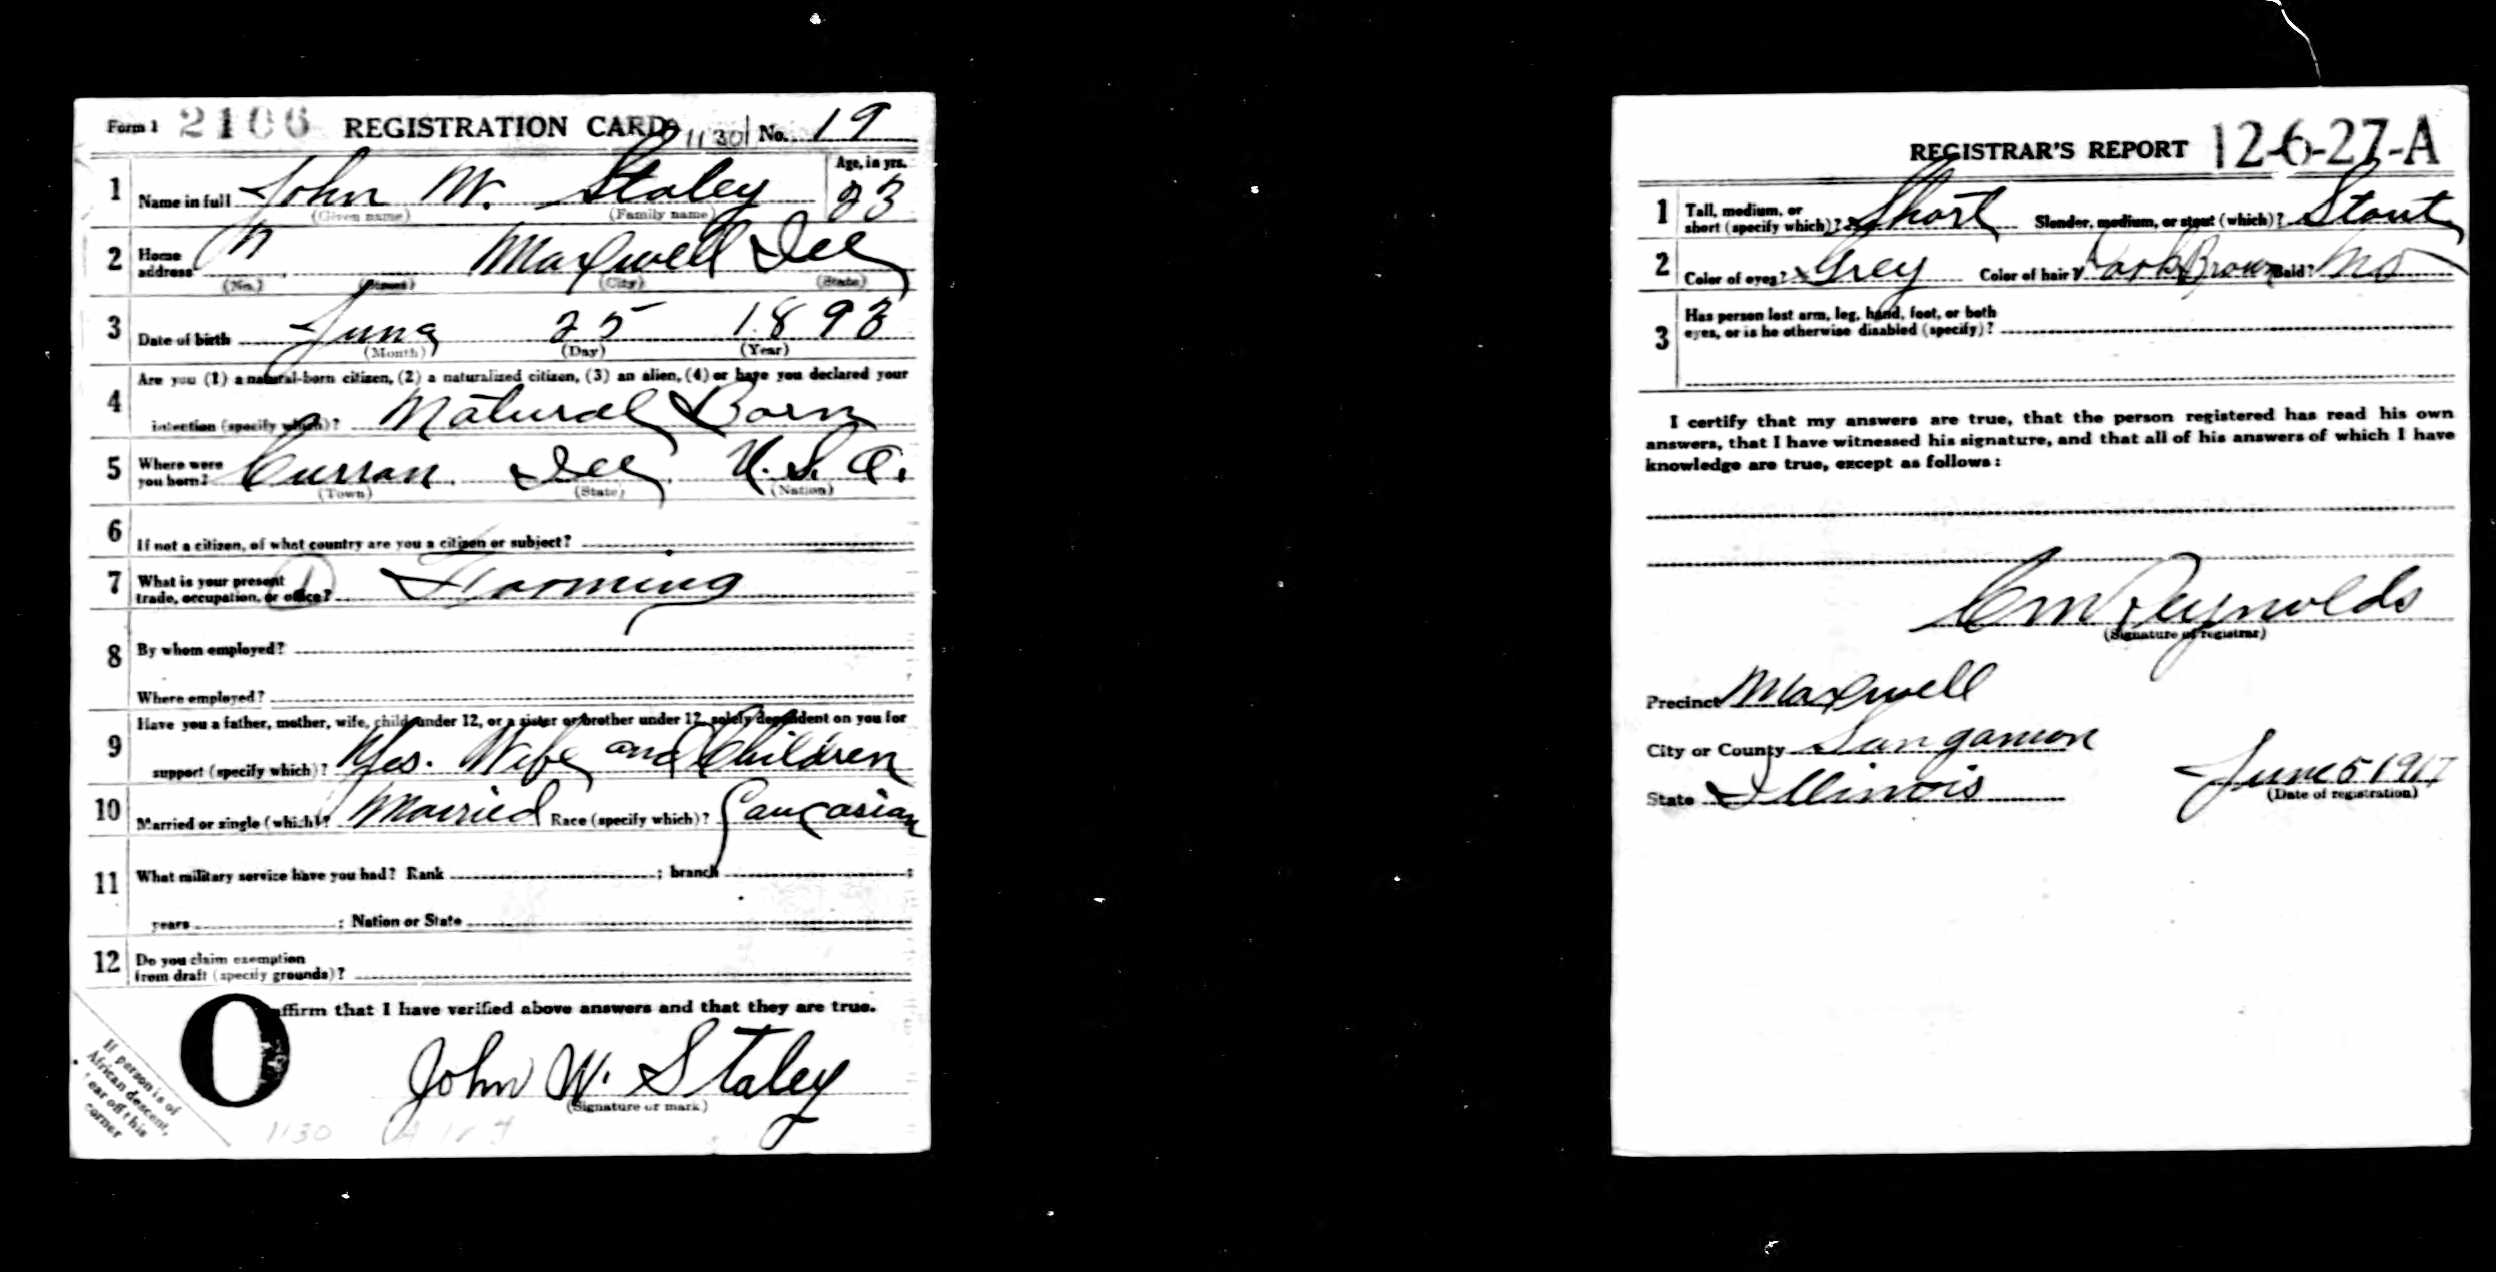 Form 1 2106 REGISTRATION CARD 1130 No. 19
1 Name in full John W. Staley Age, in yrs. 23
(Given name) (Family name)
2 Home address Maxwell Ill
(No.) (Street) (City) (State)
3 Date of birth June 25 1893
(Month) (Day) (Year)
4 Are you (1) a natural-born citizen, (2) a naturalized citizen, (3) an alien, (4) or have you declared your
intention (specify which)? Natural Born
5 Where were you born? Curran, Ill, U.S.A.
(Town) (State) (Nation)
6 If not a citizen, of what country are you a citizen or subject?
7 What is your present
trade, occupation, or office? Farming
8 By whom employed?
Where employed?
9 Have you a father, mother, wife, child under 12, or a sister or brother under 12, solely dependent on you for
support (specify which)? Yes. Wife and Children
10 Married or single (which)? Married Race (specify which)? Caucasian
11 What military service have you had? Rank ; branch ;
years ; Nation or State
12 Do you claim exemption
from draft (specify grounds)?
affirm that I have verified above answers and that they are true.
John W. Staley
(Signature or mark)
If person is of
African descent,
tear off this
corner
1130
REGISTRAR'S REPORT 12-6-27-A
1 Tall, medium, or
short (specify which)? Short Slender, medium, or stout (which)? Stout
2 Color of eyes? Grey Color of hair? Dark Brown Bald? No
3 Has person lost arm, leg, hand, foot, or both
eyes, or is he otherwise disabled (specify)?
I certify that my answers are true, that the person registered has read his own
answers, that I have witnessed his signature, and that all of his answers of which I have
knowledge are true, except as follows:
C M Reynolds
(Signature of registrar)
Precinct Maxwell
City or County Sangamon
State Illinois
June 5 1917
(Date of registration)